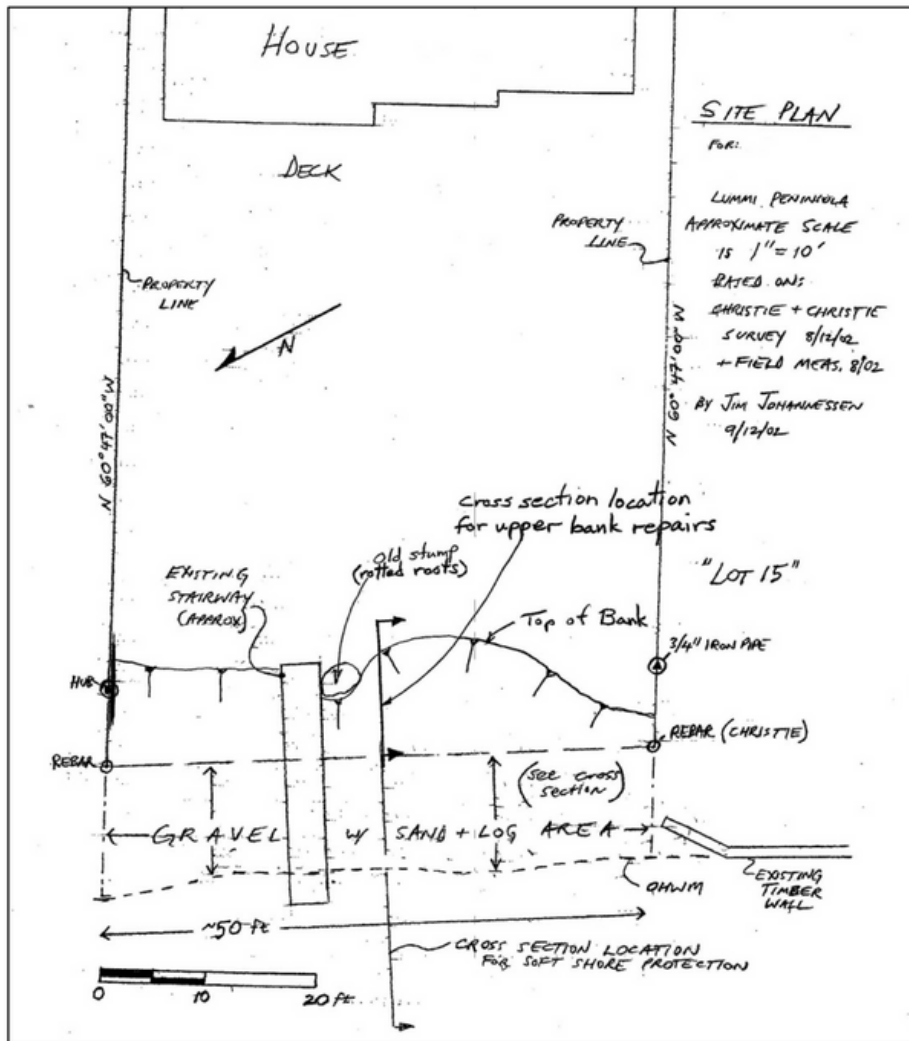 HOUSE
DECK
SITE PLAN
FOR:
LUMMI PENINSULA
APPROXIMATE SCALE
IS 1" = 10'
BASED ON:
CHRISTIE + CHRISTIE
SURVEY 8/12/02
+ FIELD MEAS. 8/02
BY JIM JOHANNESSEN
9/12/02
PROPERTY
LINE
PROPERTY
LINE
N
N 60° 47' 00" W
N 60° 47' 00" W
Cross section location
for upper bank repairs
Old stump
(rotted roots)
EXISTING
STAIRWAY
(APPROX)
"LOT 15"
Top of Bank
3/4" IRON PIPE
HUB
REBAR
REBAR (CHRISTIE)
(see cross
section)
GRAVEL W/ SAND + LOG AREA
OHWM
EXISTING
TIMBER
WALL
~50 ft
CROSS SECTION LOCATION
FOR SOFT SHORE PROTECTION
0 10 20 ft.